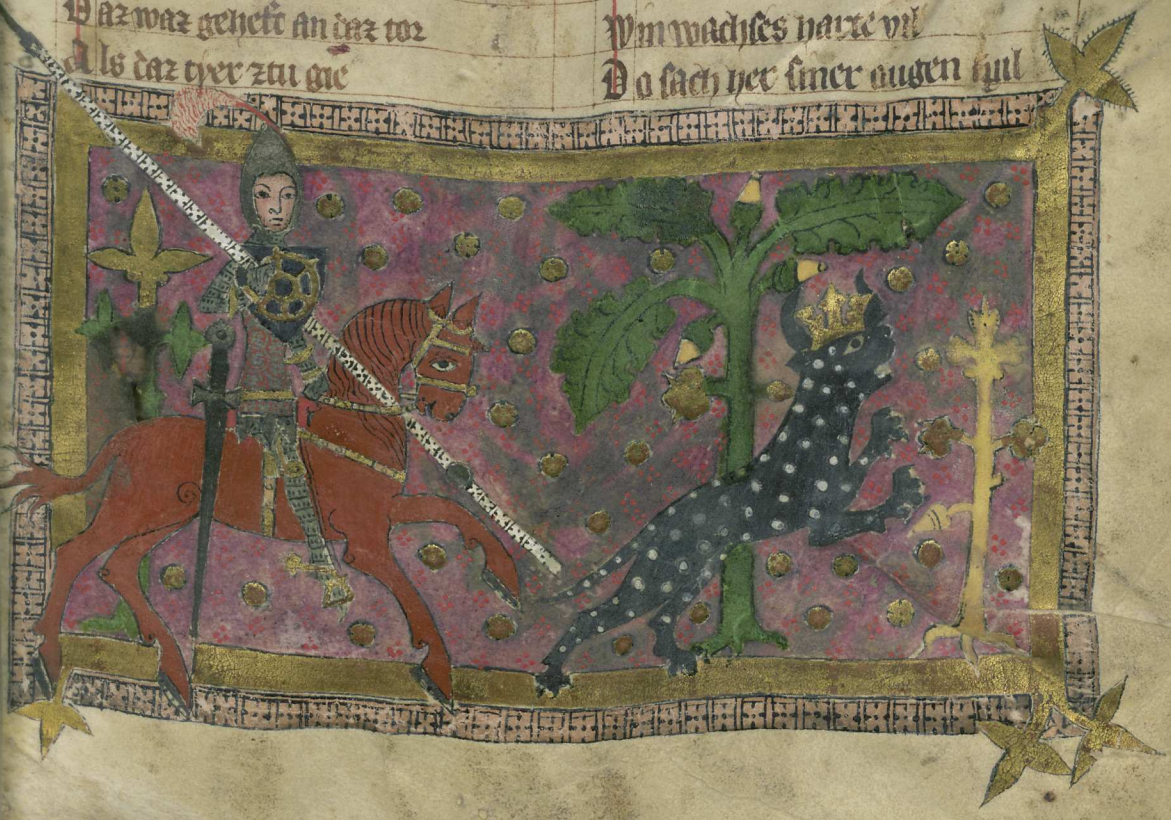 Daz waz geheft an daz tor
Als daz tyer ztu gie
Win wachses harte vil
Do sach her siner augen spil